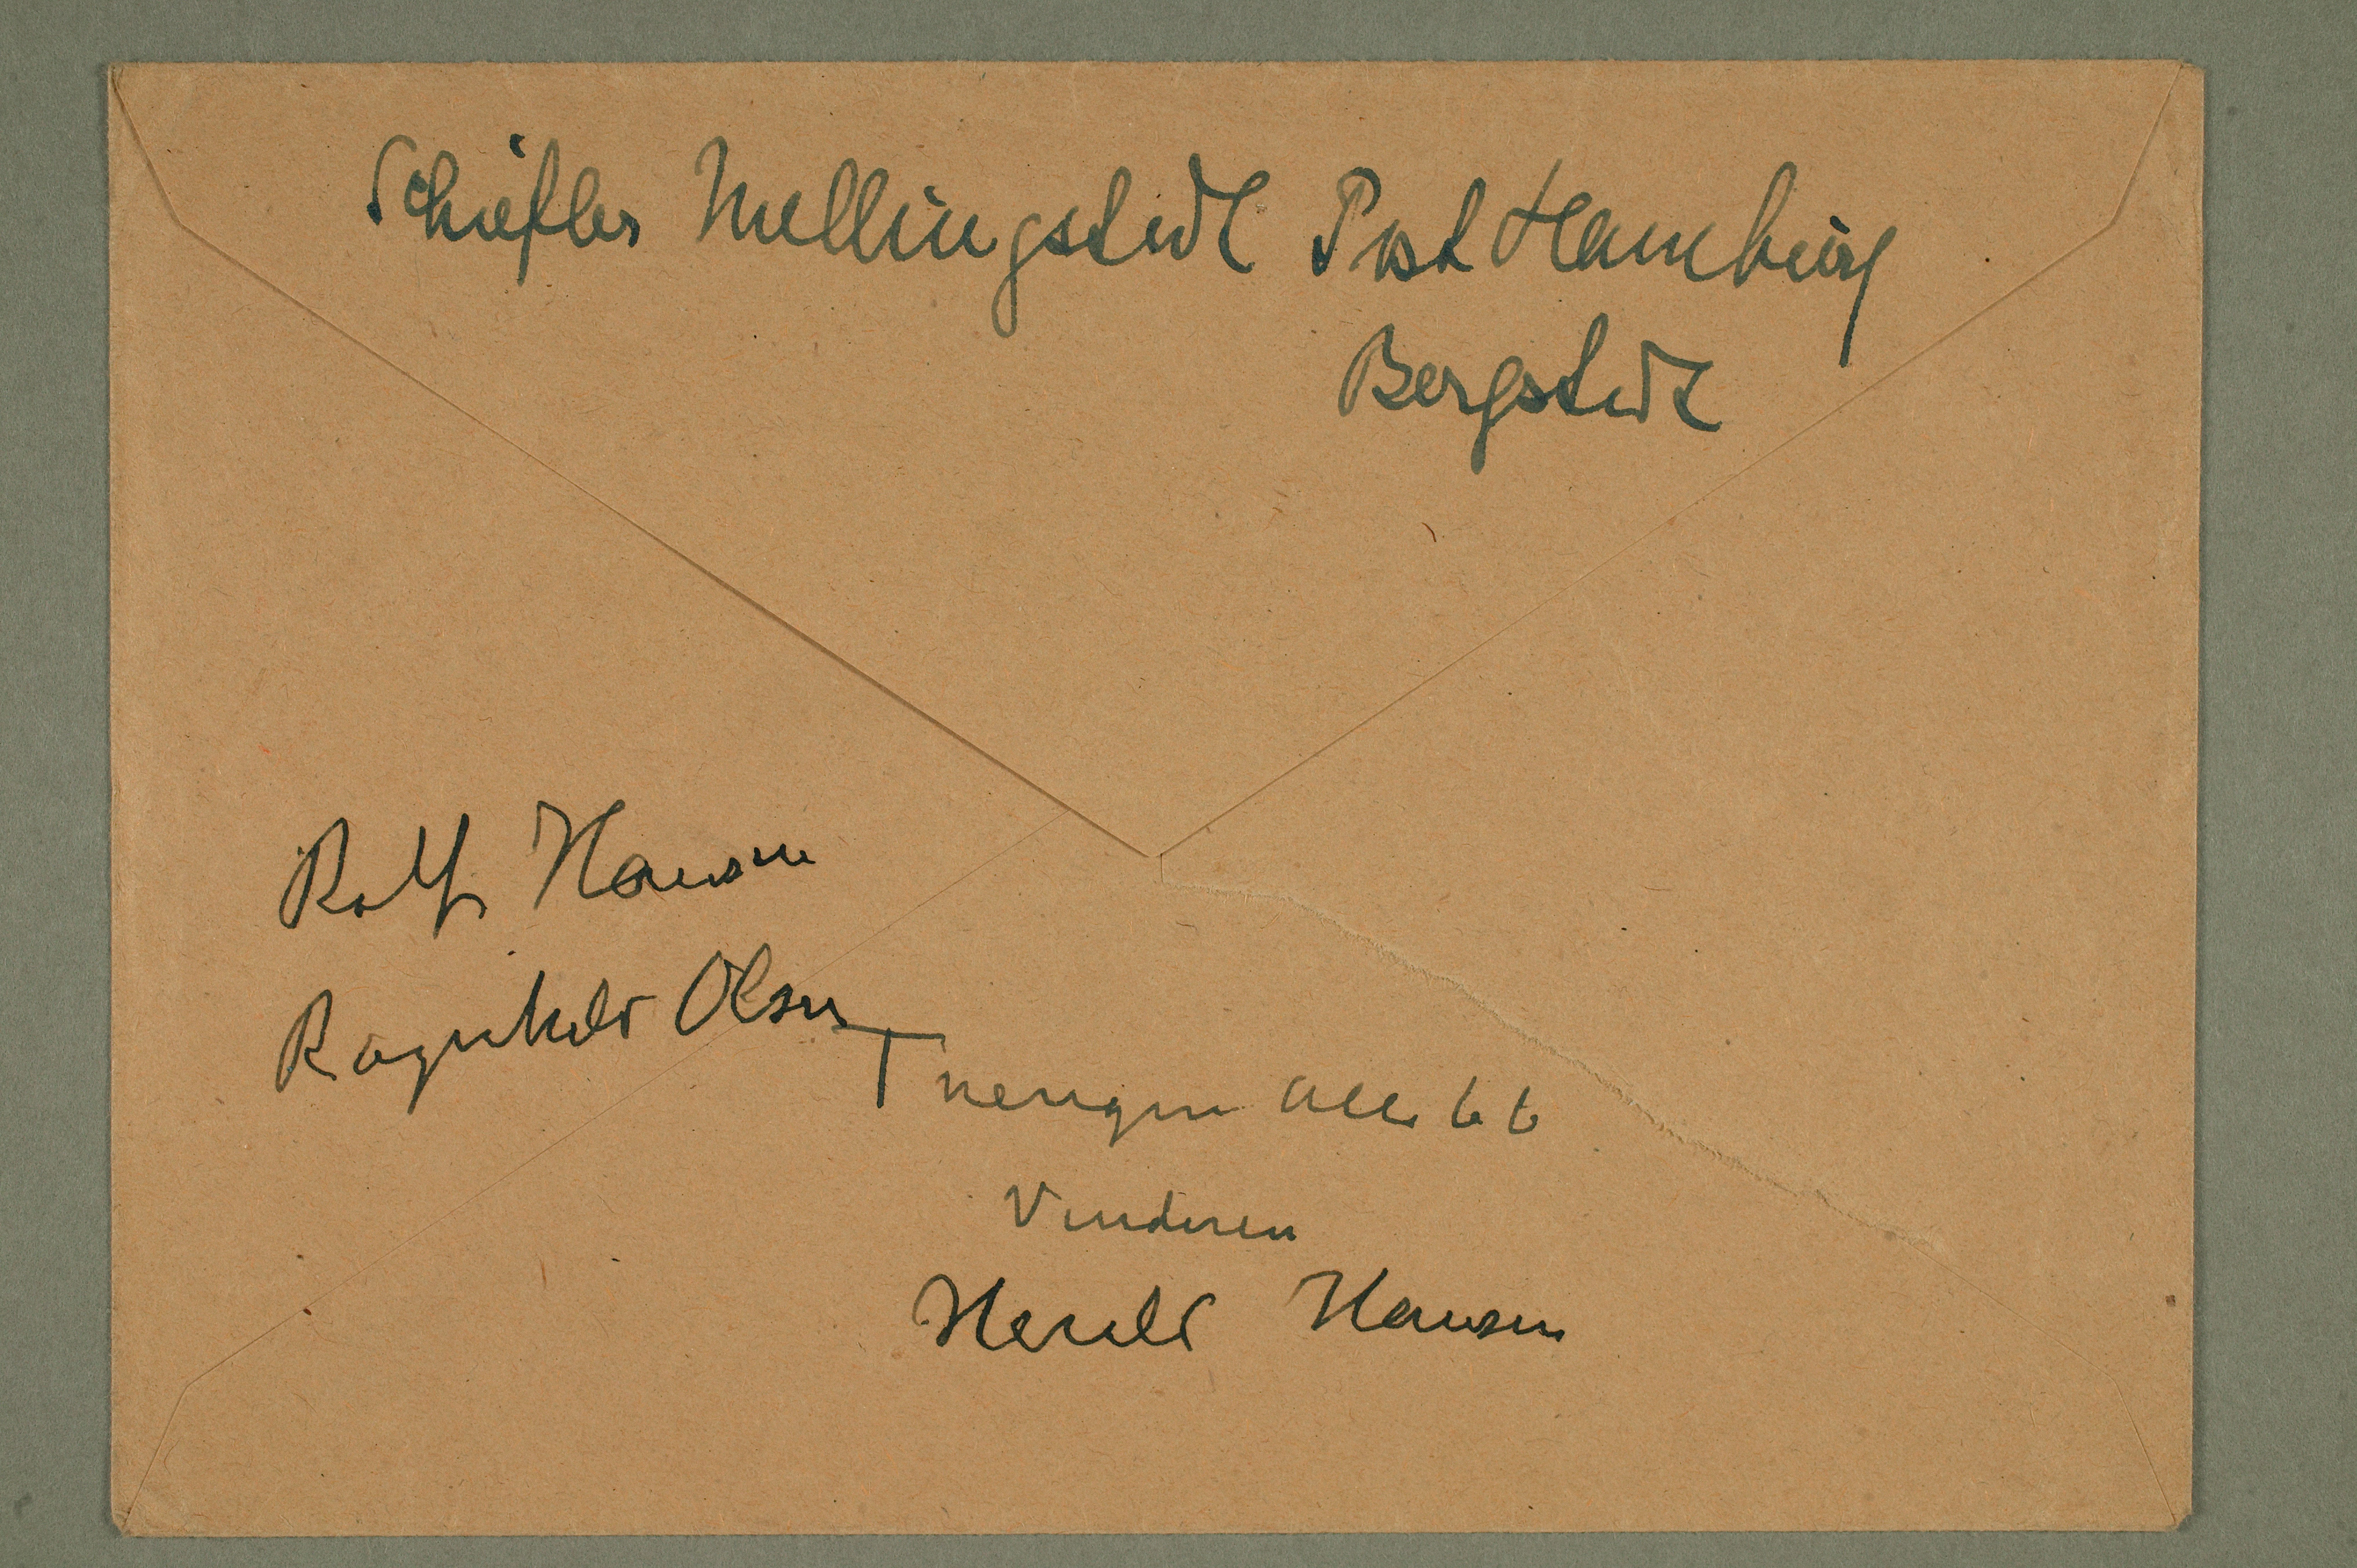 Schiefler Mellingstedt Post Hamburg
Bergstedt
Rolf Hansen
Ragnhild Olsen
Tuengen Alle 6 b
Vinderen
Harald Hansen